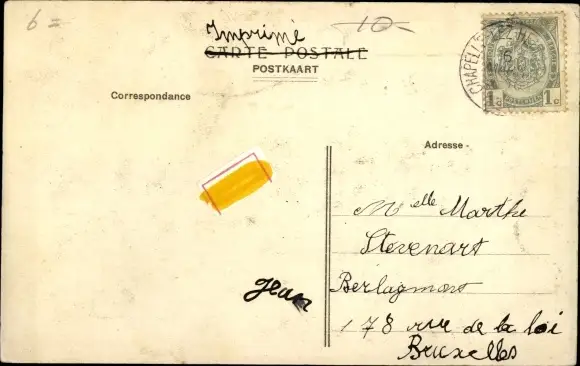 6 =
10-
Imprimé
CARTE POSTALE
POSTKAART
CHAPELLE
1c 1c
Correspondance
Adresse
Melle Marthe
Stevenart
Berlagmont
Jean
178 rue de la loi
Bruxelles